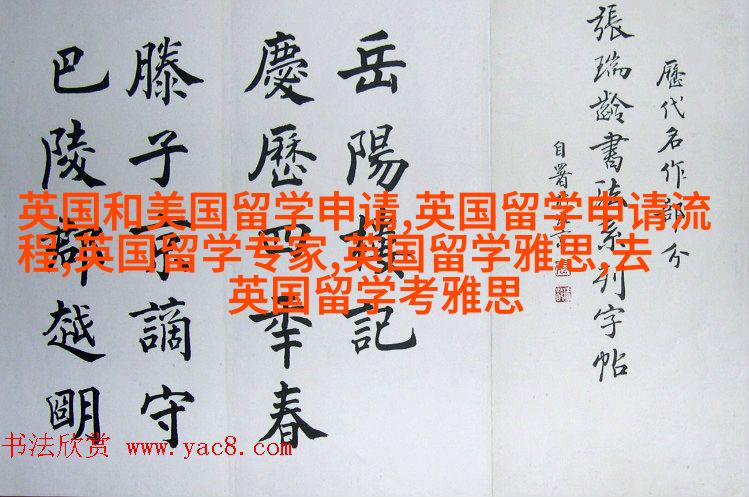 歷代名作部分
張瑞齡書法系列字帖
自署
岳陽樓記
慶歷四年春
滕子京謫守
巴陵郡越明
英国和美国留学申请,英国留学申请流
程,英国留学专家,英国留学雅思,去
英国留学考雅思
书法欣赏 www.yac8.com